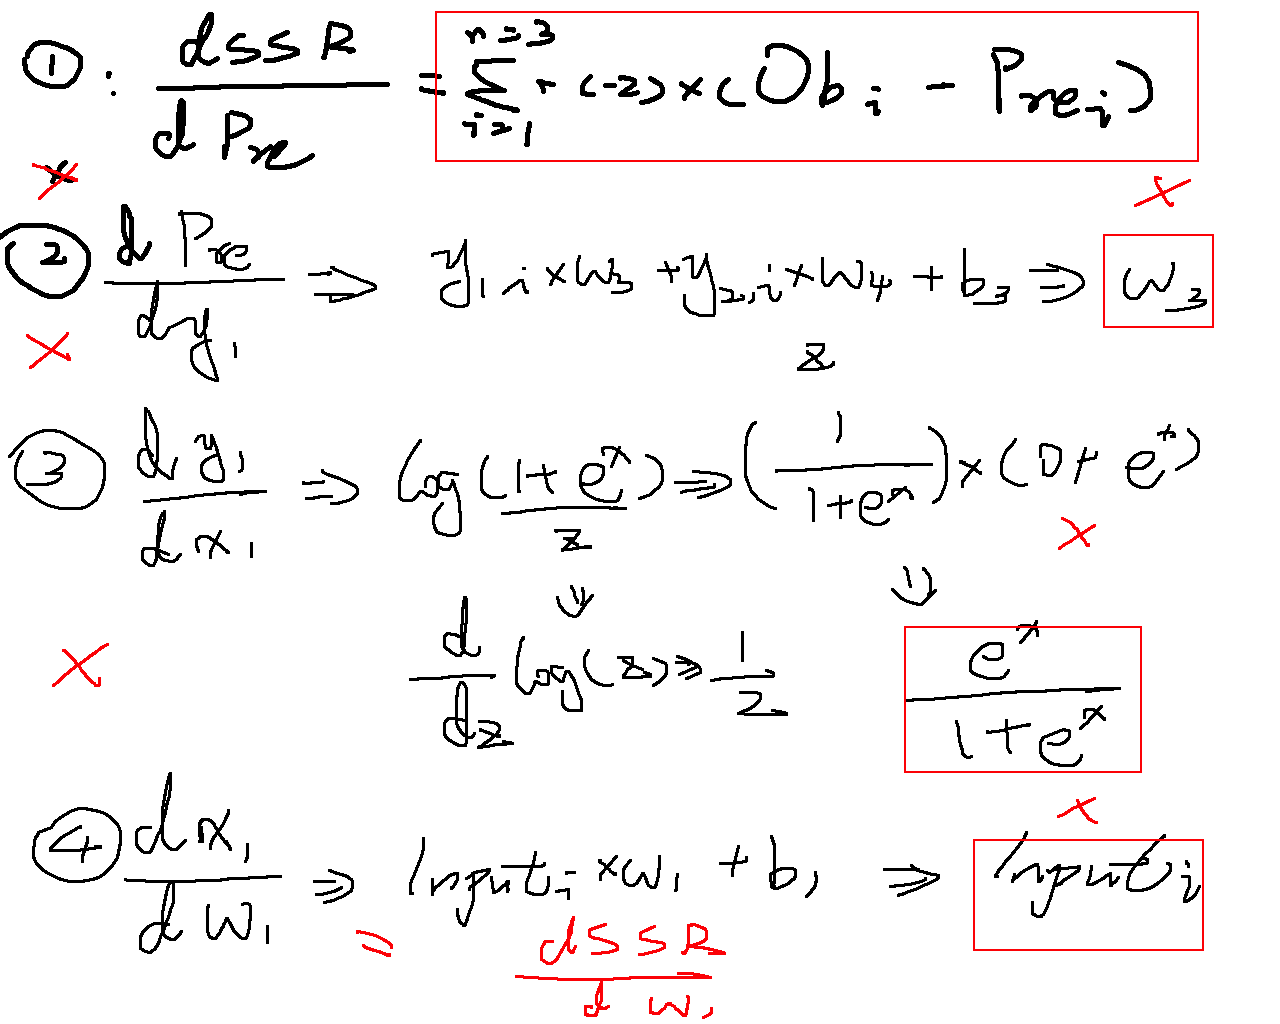 ①: dSSR / dPre = Σ(i=1, n=3) (-2) × (Ob i - Pre i)
× ×
② dPre / dy1 ⇒ y1,i × w3 + y2,i × w4 + b3 ⇒ w3
× z
③ dy1 / dx1 ⇒ log(1+e^x) ⇒ (1 / 1+e^x) × (0+e^x)
z ×
⇓ ⇓
× d/dz log(z) ⇒ 1/z e^x / 1+e^x
×
④ dx1 / dw1 ⇒ Input i × w1 + b1 ⇒ Input i
= dSSR / dw1